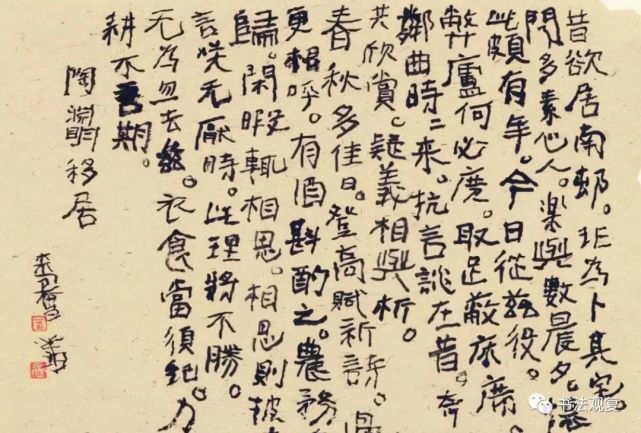 昔欲居南邨。非為卜其宅。
聞多素心人。樂與數晨夕。懷
此頗有年。今日從茲役。
弊廬何必廣。取足蔽床席。
鄰曲時二來。抗言談在昔。奇
共欣賞。疑義相與析。
春秋多佳日。登高賦新詩。過
更相呼。有酒斟酌之。農務
歸。閑暇輒相思。相思則披
言笑无厭時。此理將不勝。
无為忽去茲。衣食當須紀。力
耕不吾期。
陶淵明移居
书法观宴